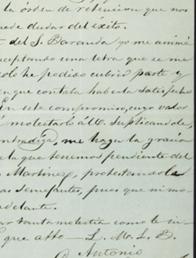 la órden de retencion que nos
puede dudar del éxito.
del S. Baranda yo me animé
aceptando una letra que se me
solo he podido cubrir parte y
en que contaba haberla satisfecho
en este compromiso, cuyo valor
molestarle á V. Suplicando
me haga la gracia
la que tenemos pendiente del
Martinez, protestando
semejantes, pues que ni mo
adelante.
tanta molestia como le
que atto L. M. L. B.
Antonio